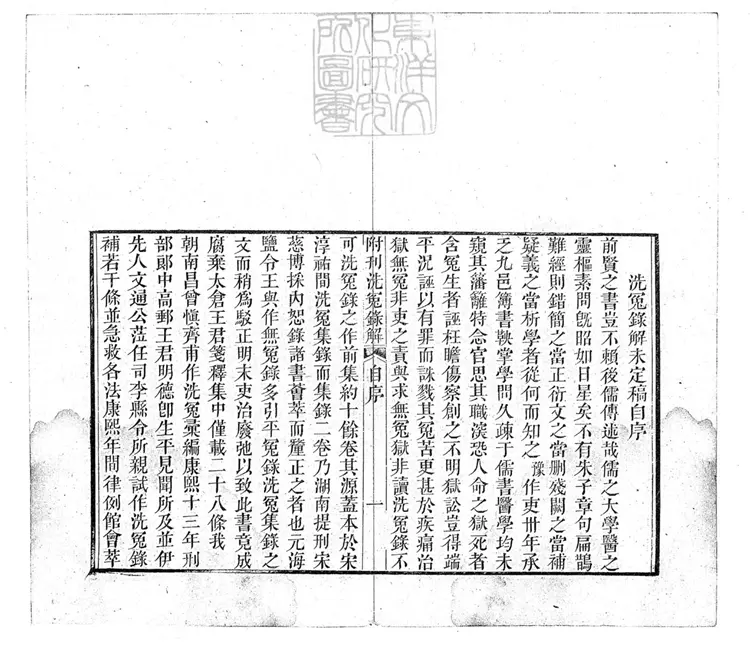 東洋文
化研究
所圖書
洗冤錄解未定稿自序
前賢之書豈不賴後儒傳述哉儒之大學醫之
靈樞素問旣昭如日星矣不有朱子章句扁鵲
難經則錯簡之當正衍文之當刪殘闕之當補
疑義之當析學者從何而知之豫作吏卅年承
乏九邑簿書鞅掌學問久疎于儒書醫學均未
窺其藩籬特念官思其職深恐人命之獄死者
含冤生者誣枉瞻傷察創之不明獄訟豈得端
平況誣以有罪而誅戮其冤苦更甚於疾痛治
獄無冤非吏之責與求無冤獄非讀洗冤錄不
附刊洗冤錄解 自序 一
可洗冤錄之作前集約十餘卷其源蓋本於宋
淳祐間洗冤集錄而集錄二卷乃湖南提刑宋
慈博採內恕錄諸書薈萃而釐正之者也元海
鹽令王與作無冤錄多引平冤錄洗冤集錄之
文而稍爲駁正明末吏治廢弛以致此書竟成
腐棄太倉王君箋釋集中僅載二十八條我
朝南昌曾愼齊甫作洗冤彙編康熙十三年刑
部郞中高郵王君明德卽生平見聞所及並伊
先人文通公蒞任司李縣令所親試作洗冤錄
補若干條並急救各法康熙年間律例館會萃